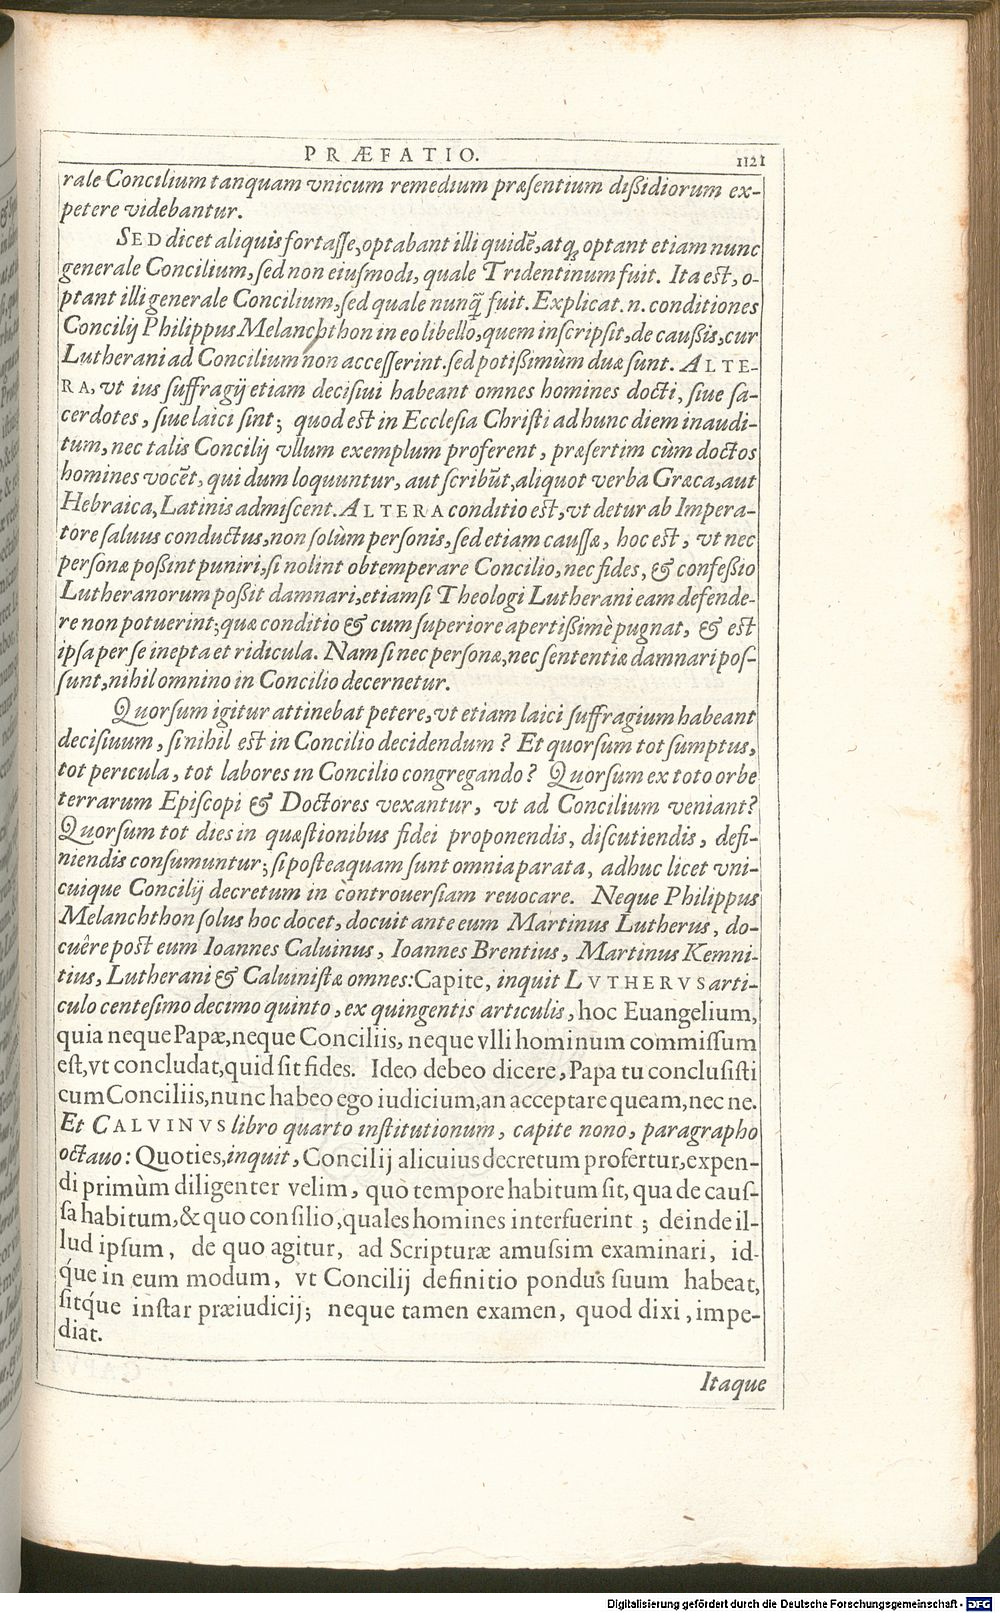 PRÆFATIO. 1121
rale Concilium tanquam vnicum remedium præsentium dißidiorum ex-
petere videbantur.
SED dicet aliquis fortasse, optabant illi quidē, atq́; optant etiam nunc
generale Concilium, sed non eiusmodi, quale Tridentinum fuit. Ita est, o-
ptant illi generale Concilium, sed quale nunq̃ fuit. Explicat.n.conditiones
Concilij Philippus Melanchthon in eo libello, quem inscripsit, de caußis, cur
Lutherani ad Concilium non accesserint. sed potißimùm duæ sunt. ALTE-
RA, vt ius suffragij etiam decisiui habeant omnes homines docti, siue sa-
cerdotes, siue laici sint; quod est in Ecclesia Christi ad hunc diem inaudi-
tum, nec talis Concilij vllum exemplum proferent, præsertim cùm doctos
homines vocēt, qui dum loquuntur, aut scribūt, aliquot verba Græca, aut
Hebraica, Latinis admiscent. ALTERA conditio est, vt detur ab Impera-
tore saluus conductus, non solùm personis, sed etiam caussæ, hoc est, vt nec
personæ poßint puniri, si nolint obtemperare Concilio, nec fides, & confeßio
Lutheranorum poßit damnari, etiamsi Theologi Lutherani eam defende-
re non potuerint; quæ conditio & cum superiore apertißimè pugnat, & est
ipsa per se inepta et ridicula. Nam si nec personæ, nec sententiæ damnari pos-
sunt, nihil omnino in Concilio decernetur.
Quorsum igitur attinebat petere, vt etiam laici suffragium habeant
decisiuum, si nihil est in Concilio decidendum? Et quorsum tot sumptus,
tot pericula, tot labores in Concilio congregando? Quorsum ex toto orbe
terrarum Episcopi & Doctores vexantur, vt ad Concilium veniant?
Quorsum tot dies in quæstionibus fidei proponendis, discutiendis, defi-
niendis consumuntur; si posteaquam sunt omnia parata, adhuc licet vni-
cuique Concilij decretum in còntrouersiam reuocare. Neque Philippus
Melanchthon solus hoc docet, docuit ante eum Martinus Lutherus, do-
cuêre post eum Ioannes Caluinus, Ioannes Brentius, Martinus Kemni-
tius, Lutherani & Caluinistæ omnes: Capite, inquit LVTHERVS arti-
culo centesimo decimo quinto, ex quingentis articulis, hoc Euangelium,
quia neque Papæ, neque Conciliis, neque vlli hominum commissum
est, vt concludat, quid sit fides. Ideo debeo dicere, Papa tu conclusisti
cum Conciliis, nunc habeo ego iudicium, an acceptare queam, nec ne.
Et CALVINVS libro quarto institutionum, capite nono, paragrapho
octauo: Quoties, inquit, Concilij alicuius decretum profertur, expen-
di primùm diligenter velim, quo tempore habitum sit, qua de caus-
sa habitum, & quo consilio, quales homines interfuerint; deinde il-
lud ipsum, de quo agitur, ad Scripturæ amussim examinari, id-
q́ue in eum modum, vt Concilij definitio pondus suum habeat,
sitq́ue instar præiudicij; neque tamen examen, quod dixi, impe-
diat.
Itaque
Digitalisierung gefördert durch die Deutsche Forschungsgemeinschaft - DFG